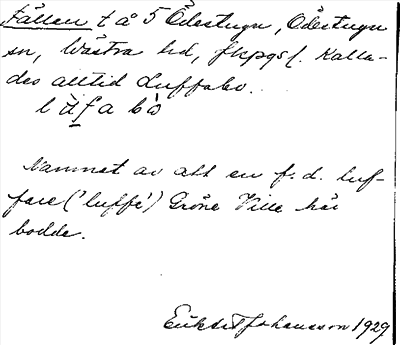 Fällen t å 5 Ödestugu, Ödestugu
sn, Västra hd, Jkpgs l. Kalla-
des alltid Luffabo.
Namnet av att en f. d. luf-
fare ('luffe') Gröne Ville här
bodde.
Johansson 1929